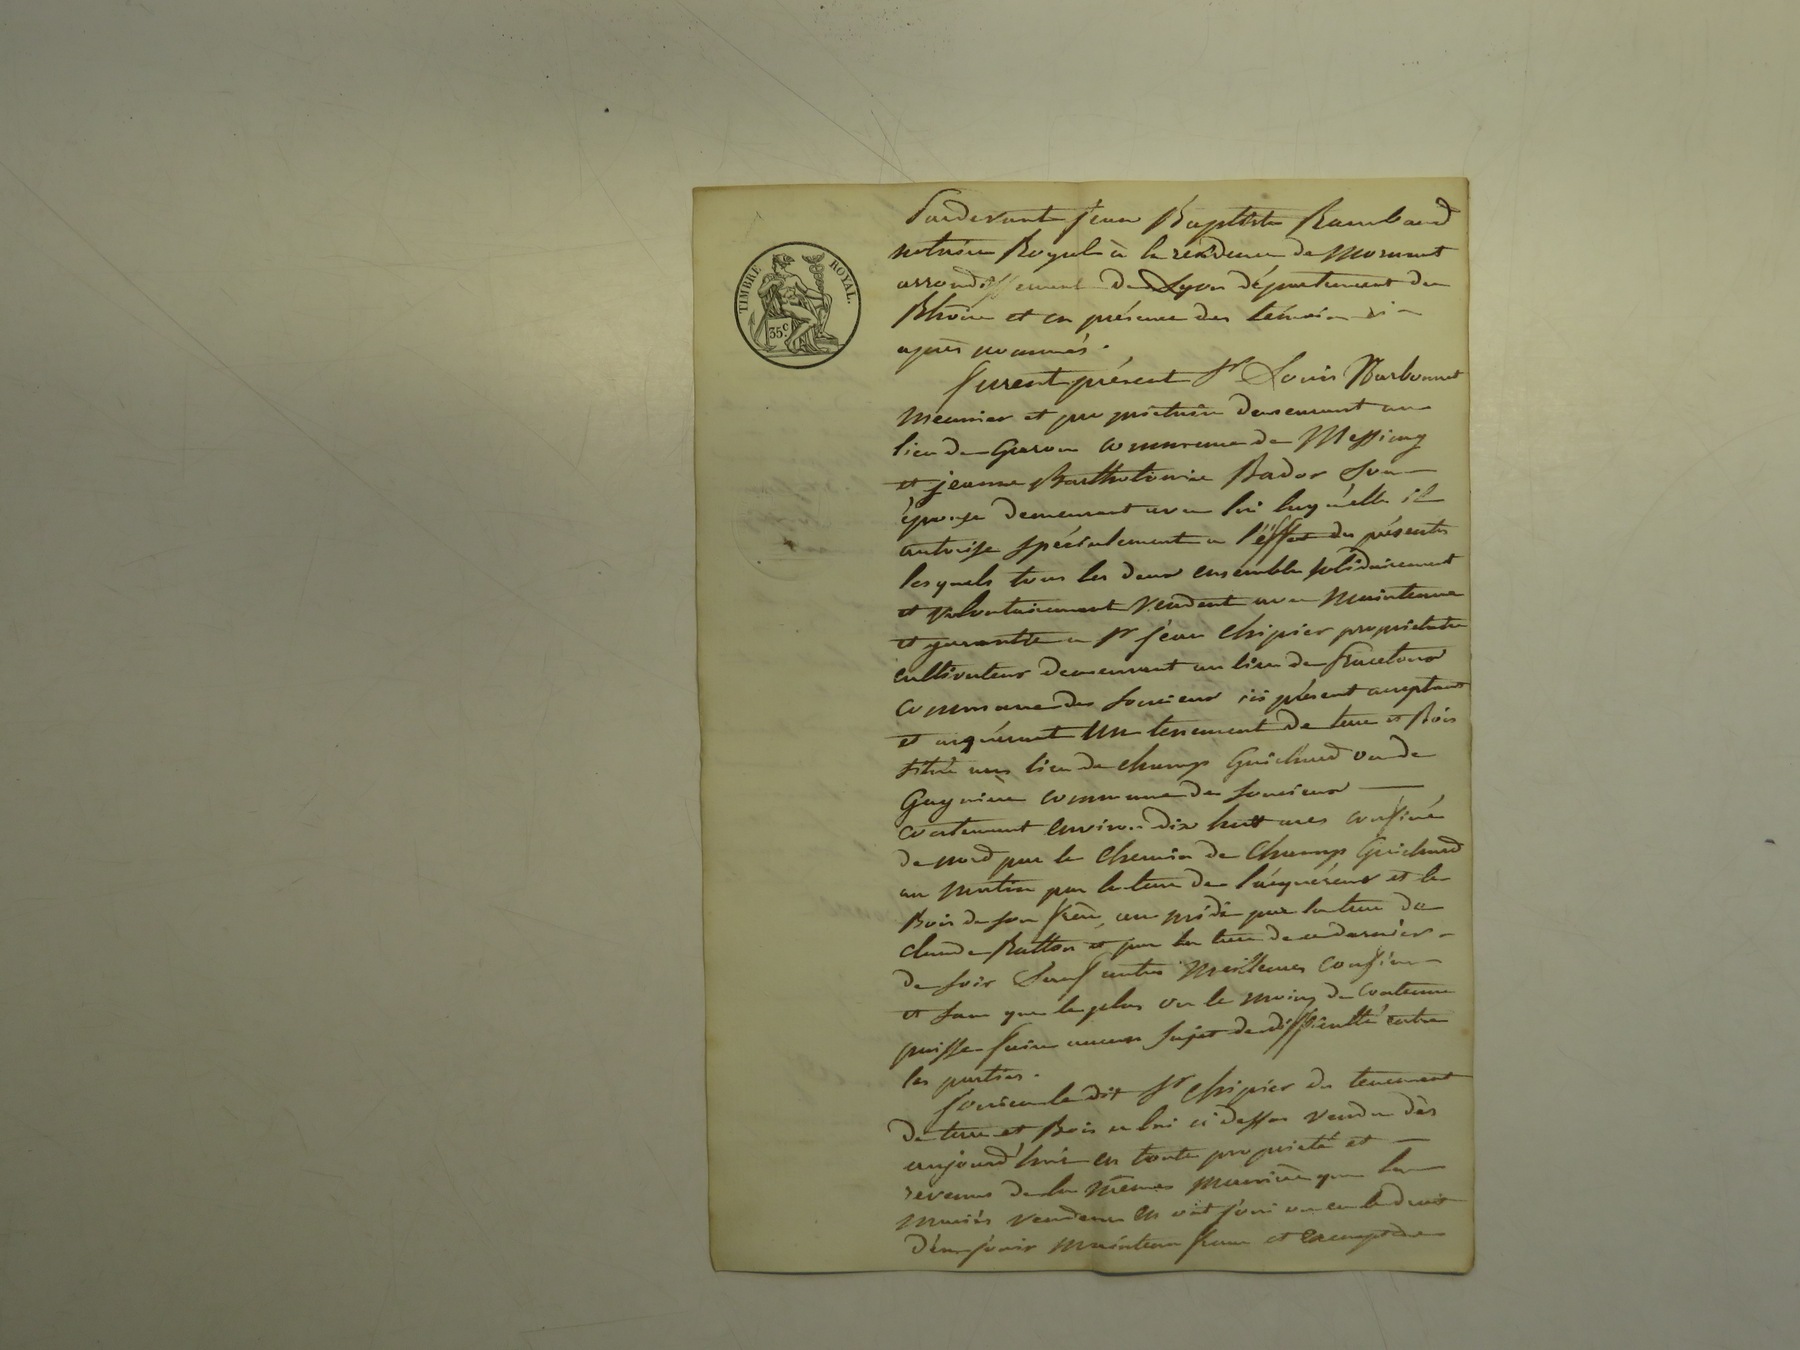 TIMBRE ROYAL.
35c.
Pardevant Jean Baptiste Rambaud
notaire Royal à la résidence de Mornant
arrondissement de Lyon département du
Rhône et en présence des témoins ci-
après nommés.
Furent présent Sr Louis Narbonnet
meunier et propriétaire demeurant au
lieu de Garon commune de Messimy
et jeanne Barthélémie Bador son
épouse demeurant avec lui laquelle il
autorise spécialement a l'effet des présentes
lesquels tous les deux ensemble solidairement
et volontairement vendent avec maintenue
et garantie a Sr jean Chipier propriétaire
cultivateur demeurant au lieu de
commune de Soucieux ici présent acceptant
et acquérant un tenement de terre et Bois
situé au lieu de champ Guichard ou de
commune de Soucieux
contenant environ dix huit ares confiné
de nord par le chemin de Champ Guichard
au matin par la terre de l'acquéreur et le
Bois de son frère, au midi par la terre de
claude et par la terre de ce dernier
de soir Sauf autres meilleures confins
et sans que le plus ou le moins de contenue
puisse faire aucun sujet de difficulté entre
les parties.
Jouira le dit Sr Chipier du tenement
de terre et Bois a lui ci dessus vendu dès
aujourd'hui en toute propriété et
revenus de la même manière que les
mariés vendeurs en ont joui ou eu le droit
d'en jouir maintenu franc et exempt de